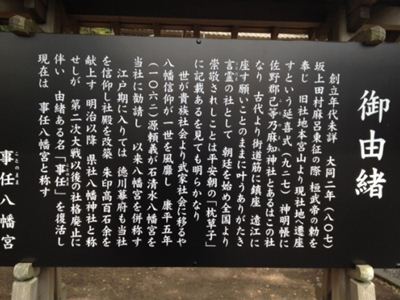 御由緒
創立年代未詳　大同二年（八〇七）
坂上田村麻呂東征の際　桓武帝の勅を
奉じ　旧社地本宮山より現社地へ遷座
すという延喜式（九二七）　神明帳に
佐野郡己等乃麻知神社とあるはこの社
なり　古代より街道筋に鎮座　遠江に
座す願いことのままに叶うありがたき
言霊の社として　朝廷を始め全国より
崇敬されしことは平安朝の「枕草子」
に記載あるを見ても明らかなり
世が貴族社会より武家社会に移るや
八幡信仰が一世を風靡し　康平五年
（一〇六二）源頼義が石清水八幡宮を
当社に勧請し　以来八幡宮を併称す
江戸期に入りては　徳川幕府も当社
を信仰し社殿を改築　朱印高百石余を
献上す　明治以降　県社八幡神社と称
せしが　第二次大戦以後の社格廃止に
伴い　由緒ある名「事任」を復活し
現在は　事任八幡宮と称す
ことのまま
事任八幡宮